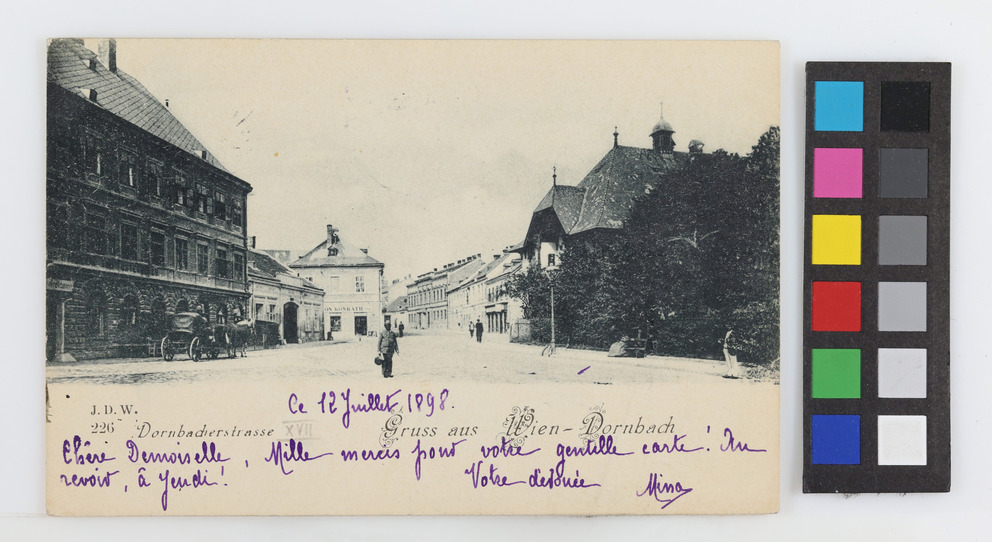 ON KONRATH
J. D. W.
226
Dornbacherstrasse
XVII
Gruss aus Wien-Dornbach
Ce 12 Juillet 1898.
Chère Demoiselle, Mille mercis pour votre gentille carte! Au
revoir, à Jeudi! Votre dévouée Minna